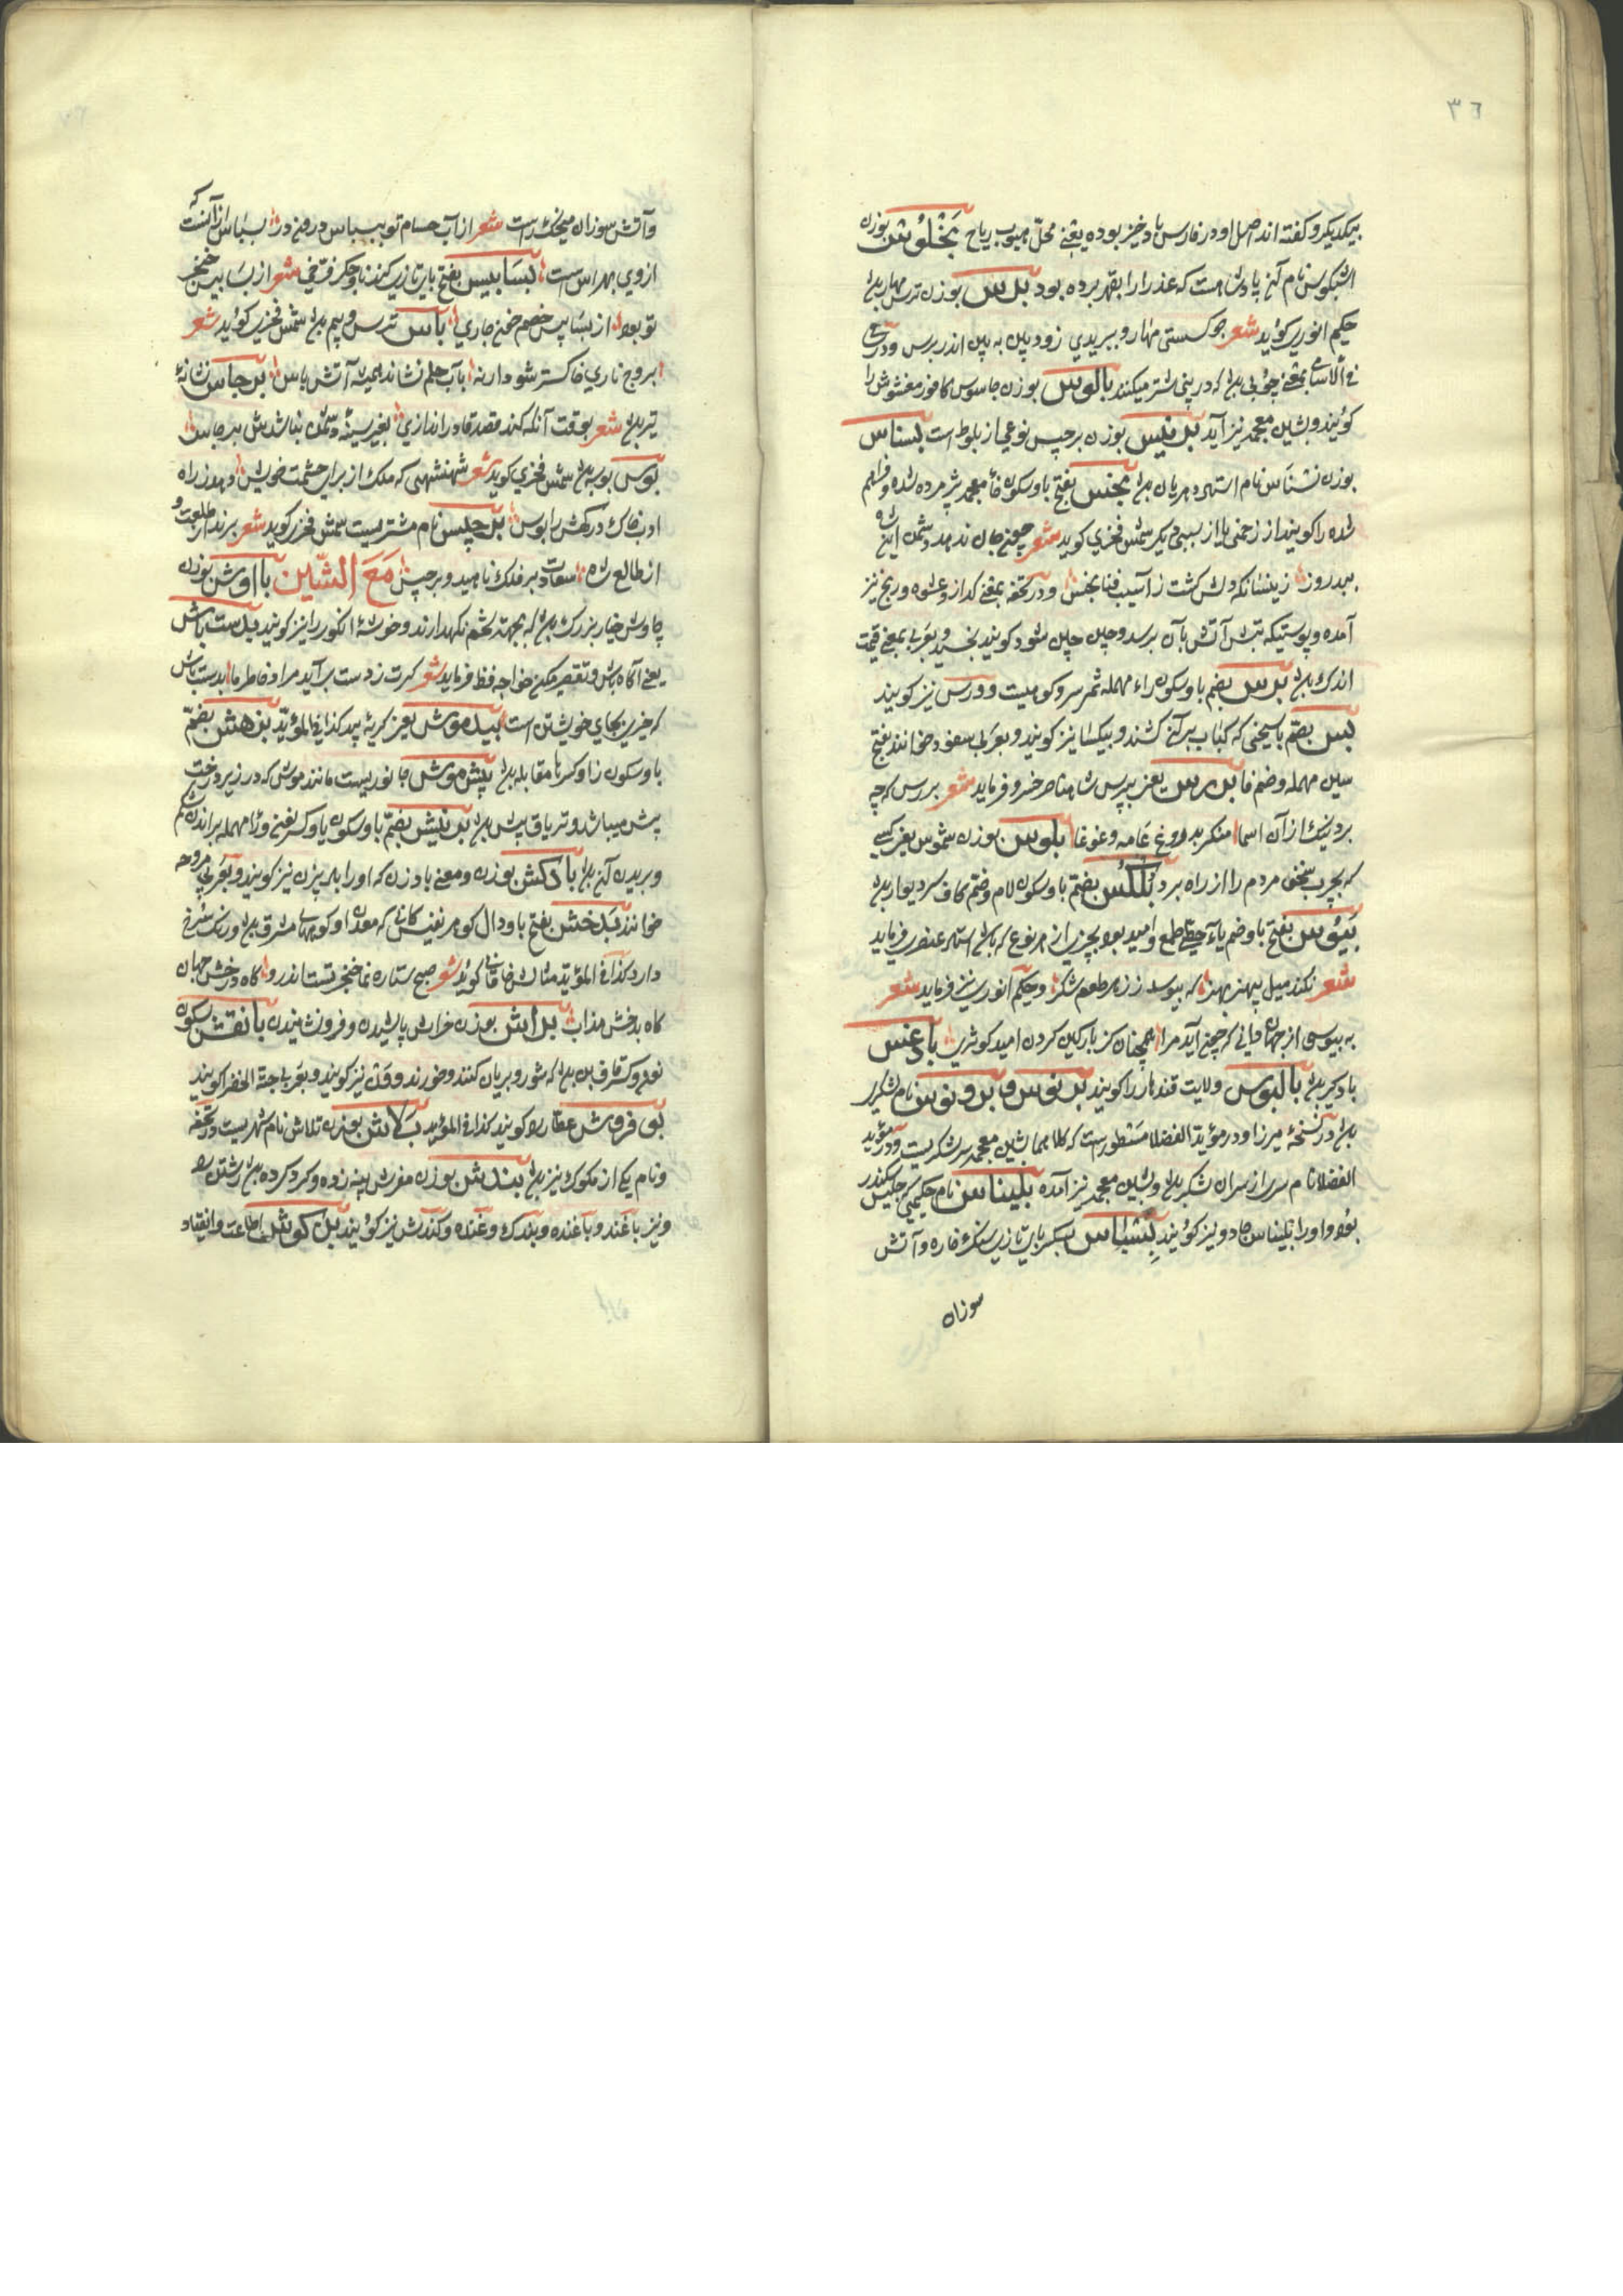 ٣٦
بیکدیکر و کفته اند اصل او در فارس باد خیز بوده یعنی محلّ هبوب ریاح بَخْلُوسْ بوزن
اشکبوس نام آن پادشاهست که عذرا را بقهر برده بود برس بوزن ترس مهار بود
حکیم انوری کوید شعر جو کسستی مهار و ببریدی زود پین به پین اندر برس و در
فی الاسامی بمعنی چوبی بود که در بینی شتر میکنند بالوس بوزن جاسوس کافور مغشوش را
کویند و بشین معجمه نیز آید برنیس بوزن برجیس نوعی از بلوط است بسناس
بوزن نشناس نام استهر دهریان بود بخس بفتح با و سکون خاء معجمه پژمرده شده و فراهم
شده را کویند از زحمتی یا از سببی دیکر شمس فخری کوید شعر جان ندهد دشمن
بهر روز زینسانکه دلش کشت ز آسیب فنا بخس و در تحفه بمعنی کداز و عشوه و رنج نیز
آمده و پوستیکه تبش آتش بآن برسد و چین چین شود کویند بخسید و بعربی بمعنی قیمت
اندک بود برس بضم با و سکون راء مهمله ثمر سرو کوهیست و ورس نیز کویند
بس بضم با سیخی که کباب بر آن کشند و بیکسا نیز کویند و بعربی سفود خوانند بفتح
سین مهمله و ضم فا بررس یعنی بپرس شاه ناصر خسرو فرماید شعر بررس که چه
بود نیک از آن اسما منکر بدروغ عامه و غوغا بلوس بوزن شموس یعنی کسی
که بچرب سخنی مردم را از راه برد بلکُس بضم با و سکون لام و ضم کاف سر دیوار بود
بَیُوس بفتح با و ضم یاء حطی طمع و امید بود بچیزی از هر نوع که باشد استاد عنصری فرماید
شعر نکند میل بیهنر بهنر که بیوسد ز زهر طعم شکر و حکیم انوری نیز فرماید شعر
به بیوسی از جهان دانی که چون آید مرا همچنان کز بارکین کردن امید کوثری بادغس
بادکیر بود بالبوس ولایت قندهار را کویند برنوس و بروتوس نام شکری
بود در نسخهٔ میرزا و در مؤید الفضلا مسطور است که کلاهما بشین معجمه سر لشکریست و در مؤید
الفضلا نام سری از سران شکر بود و بشین معجمه نیز آمده بلیناس نام حکیمی جلیس سکندر
بوده و او را بلیناس جادو نیز کویند بِسْبَاس بکسر بای تازی سنک خاره و آتش
سوزان
وآتش سوزان میخکدر است شعر از آب حسام تو ببسباس در رفته در بسباس از آنست که
از وی بهراس است بسابیس بفتح بای تازی کندنا و جکر فرّخی شعر از بسابیس خنجر
تو بود از بسابیس خصم خون جاری باس ترس و بیم بود شمس فخری کوید شعر
بروج ناری خاکستر شود ار نه بآب حلم نشاند همیشه آتش باس برجاس نشانهٔ
تیر بود شعر بوقت آنکه کند قصد قادر اندازی بغیر سینهٔ دشمن نباشدش برجاس
بوس بوسه بود شمس فخری کوید شعر شهنشهی که ملک از برای حشمت خویش دهد ز راه
ادب خاک درکهش را بوس برجیس نام مشتریست شمس فخری کوید شعر برند از طلعت و
از طالع شاه سعادت بر فلک ناهید و برجیس مَعَ الشّین بااوش بوزن
چاوش خیار بزرک بود که بجهت تخم نکهدارند و خوشهٔ انکور را نیز کویند بدست باش
یعنی آکاه باش و تقصیر مکن خواجه حافظ فرماید شعر کرت ز دست برآید مراد خاطر ما بدست باش
که خیری بجای خویشتن است بیدموش یعنی کربهٔ بید کذا فی المؤید بزهش بضم
با و سکون زا و کسر ها مقابله بود بیش موش جانوریست مانند موش که در زیر درخت
بیش میباشد و تریاق بیش بود برنیش بضم با و سکون یا و کسر نون و را مهمله براندن شکم
و بریدن آن بود بادکش بوزن و معنی بادزن که او را بادبیزن نیز کویند و بعربی مروحه
خوانند بَدَخش بفتح با و دال کوهر نفیس کانی که معدن او کوههای مشرق بود و رنک سُرخ
دارد کذا فی المؤید مثالش خاقانی کوید شعر صبح ستاره نما خنجر تست اندرو کاه درخش جهان
کاه بدخش مذاب برایش بوزن خراش پاشیدن و فرو نشاندن بانقش بسکون
نون و کسر قاف بن بود که شور و بریان کنند و خورند و ون نیز کویند و بعربی حبّة الخضر کویند
بوی فروش عطار را کویند کذا فی المؤید بَلاش بوزن تلاش نام شهریست و در تحفه
و نام یکی از ملوک نیز بود بندش بوزن مفرش پنبه زده و کرد کرده بود رشتن را
و نیز باغند و باغنده و بندک و غنده و کندش نیز کویند بزکوش اطاعت و انقیاد